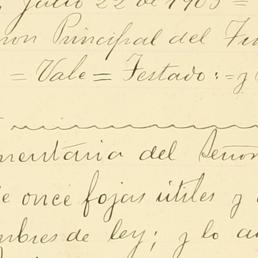 Julio 22 de 1905 =
Principal del
= Vale = Testado: = y
mentaria del Señor
e once fojas útiles y
mbres de ley; y lo